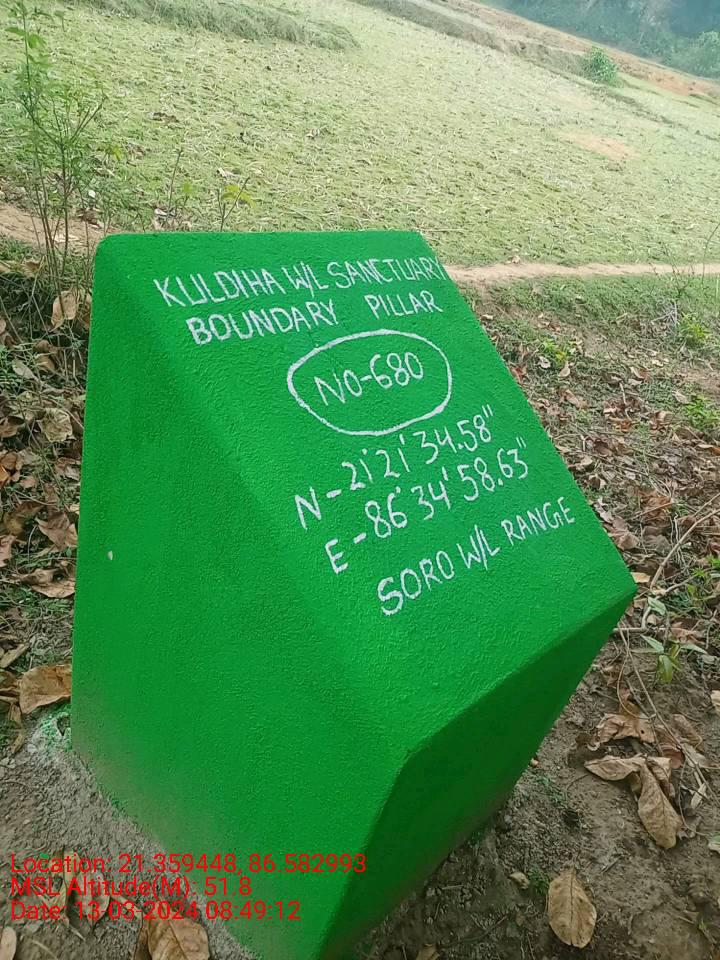 KULDIHA W/L SANCTUARY
BOUNDARY PILLAR
NO-680
N-21'21'34.58"
E-86'34'58.63"
SORO W/L RANGE
Location: 21.359448, 86.582993
MSL Altitude(M): 51.8
Date: 13-03-2024 08:49:12